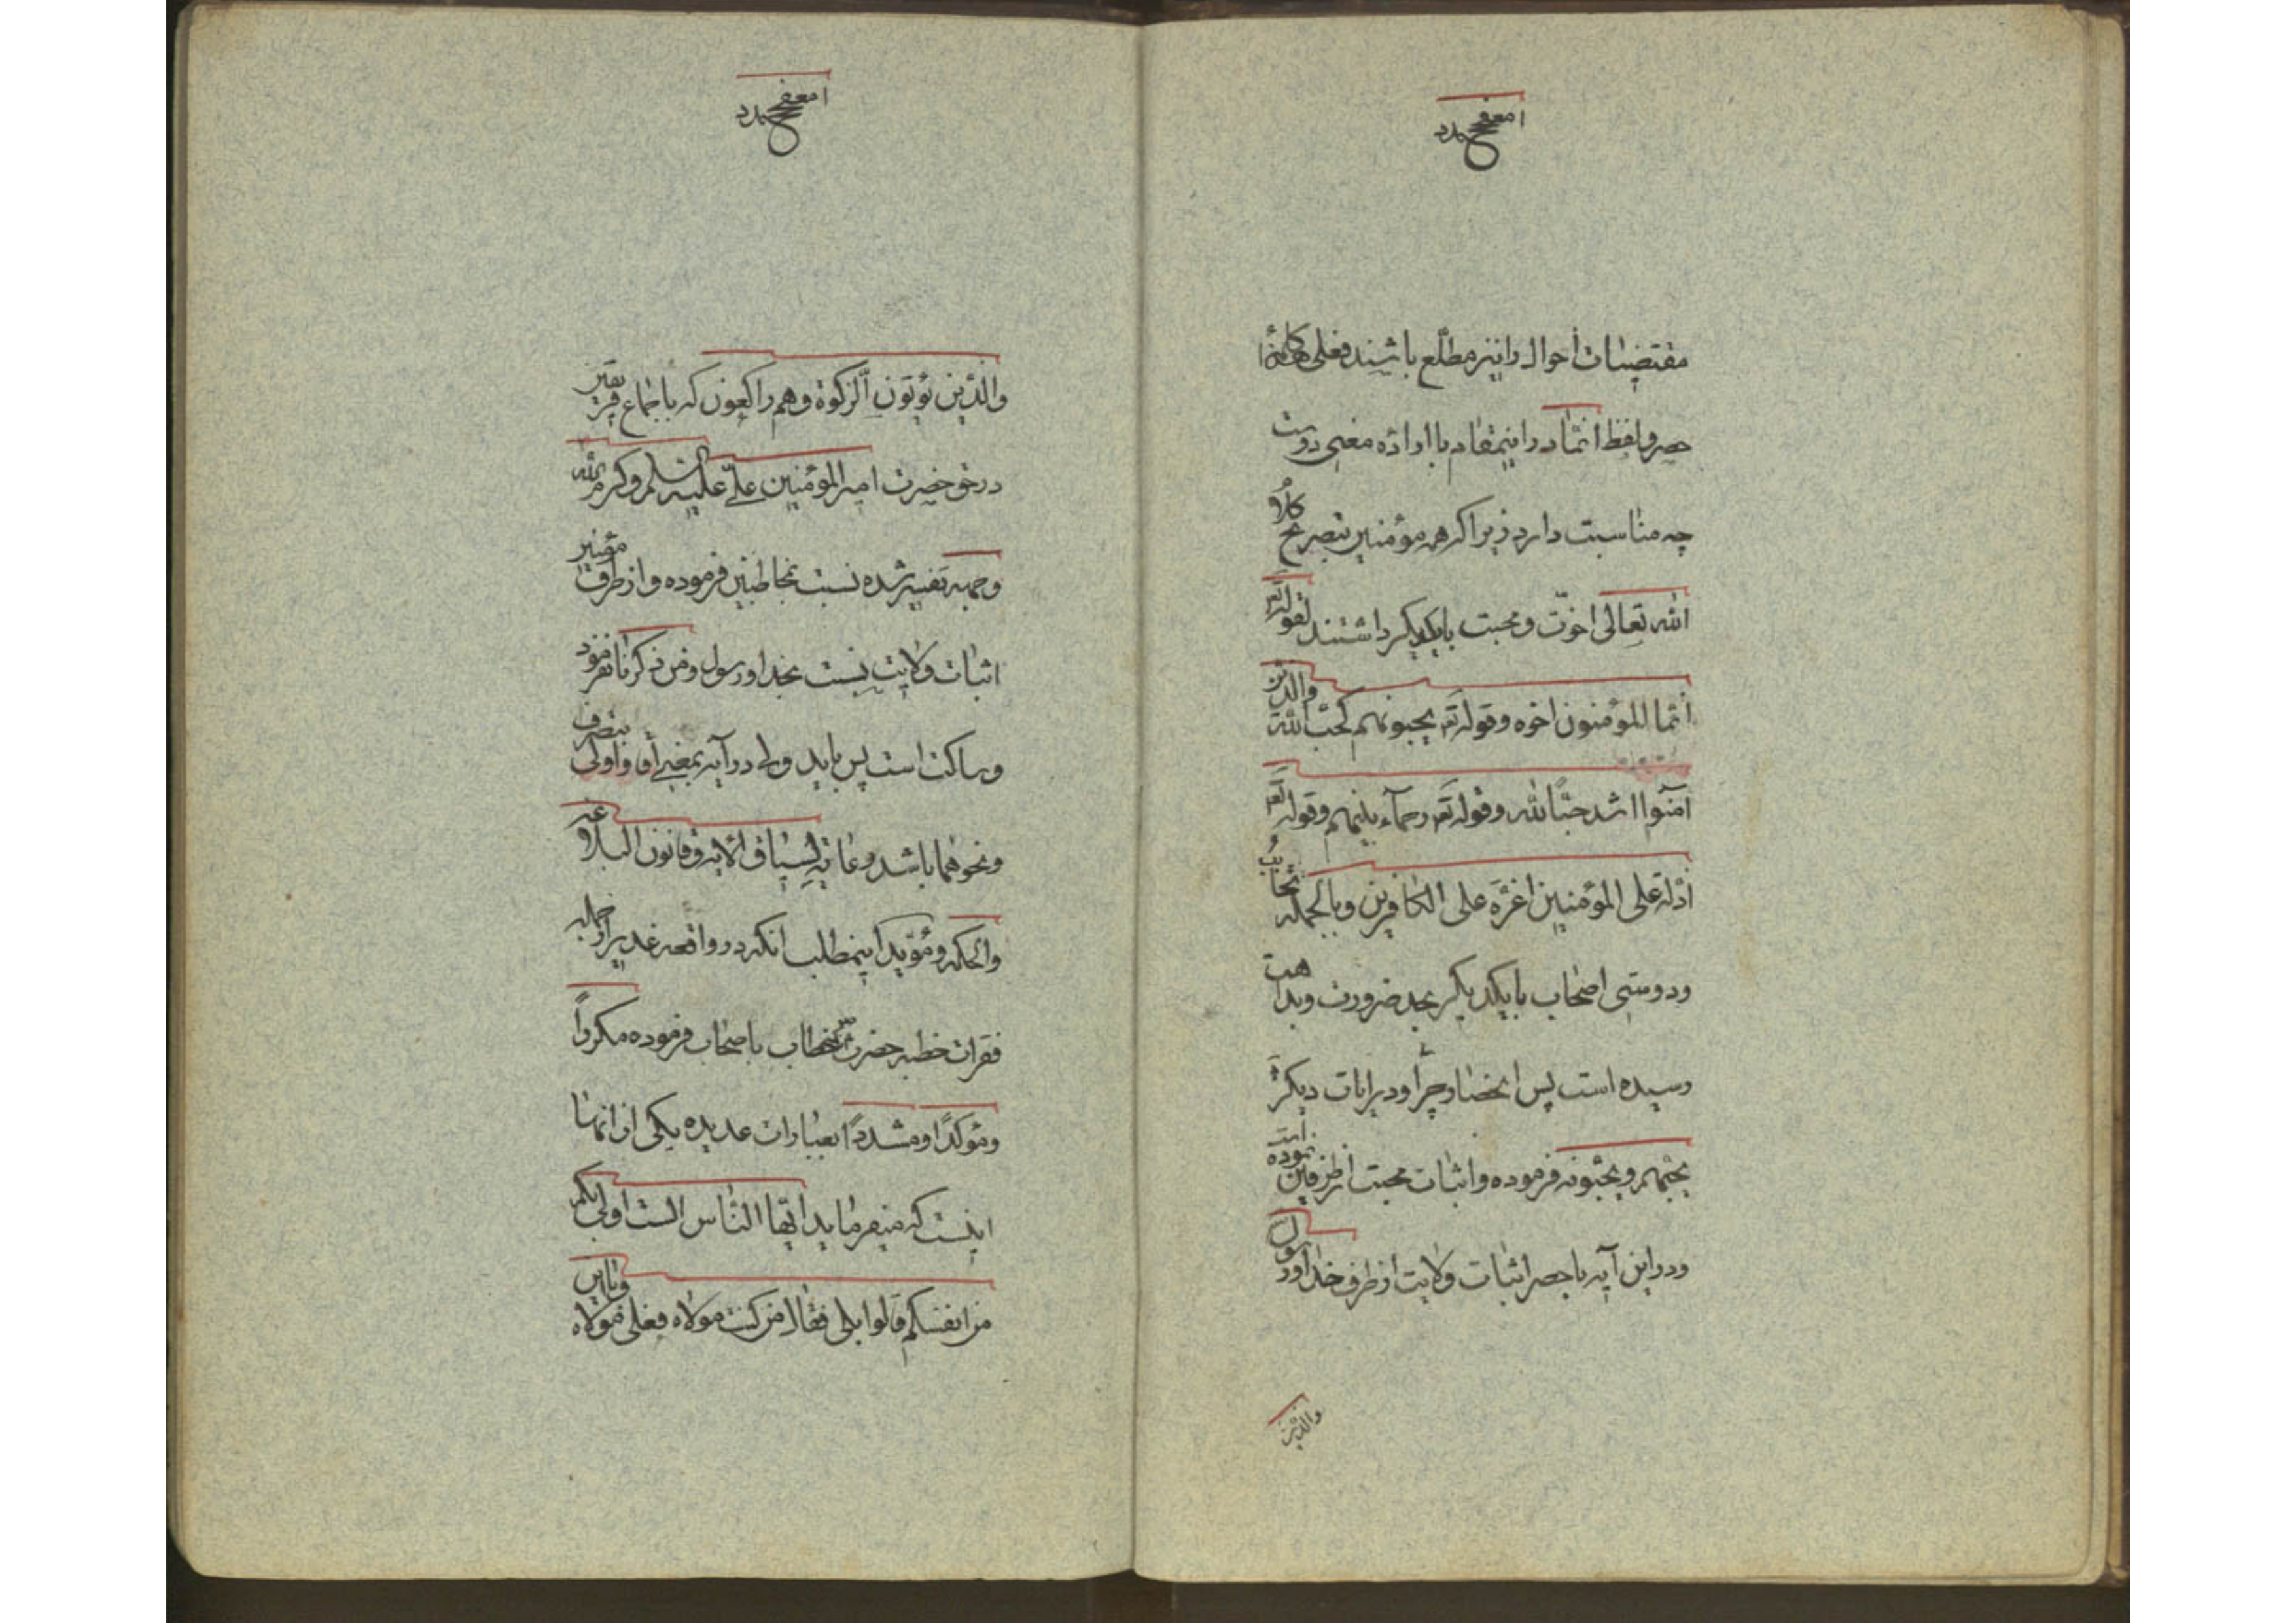 مقتضیات احوال را نیز مطلع باشند فعلی هذا کلمه
حصر و لفظ انما در اینمقام با اراده معنی دوست
چه مناسبت دارد زیرا که همه مؤمنین بتصریح کلام
الله تعالی اخوّت و محبت بایکدیگر داشتند لقوله تع
انما المؤمنون اخوه و قوله تع یحبونهم کحبّ الله والذین
آمنوا اشد حبّاً لله و قوله تع رحمآء بینهم و قوله تع
اذلة علی المؤمنین اعزّة علی الکافرین و بالجمله تحابب
و دوستی اصحاب با یکدیگر بحد ضرورت و بداهت
رسیده است پس انحصار چرا و در آیات دیگر
یحبّهم و یحبّونه فرموده و اثبات محبت از طرفین نموده است
و در این آیه با حصر اثبات ولایت از طرف خدا و رسول
والذین
والذین یؤتون الزکوة و هم راکعون که باجماع فریقین
در حق حضرت امیر المؤمنین علیّ علیه السلم و کرم الله
وجهه تفسیر شده نسبت بمخاطبین فرموده و از طرف مؤمنین
اثبات ولایت نسبت بخدا و رسول و من ذکر نا نفرموده
و ساکت است پس باید ولی در آیه بمعنی اولی بتصرف
و نحوهما باشد رعایة لسیاق الآیه و قانون البلاغه
والحکمه و مؤید اینمطلب انکه در واقعه غدیر از جمله
فقرات خطبه حضرت خطاب با صحاب فرموده مکرراً
و مؤکدًا و مشددًا بعبارات عدیده یکی از انها
اینست که میفرماید ایّها النّاس الست اولی بکم
من انفسکم قالوا بلی فقال من کنت مولاه فعلی مولاه